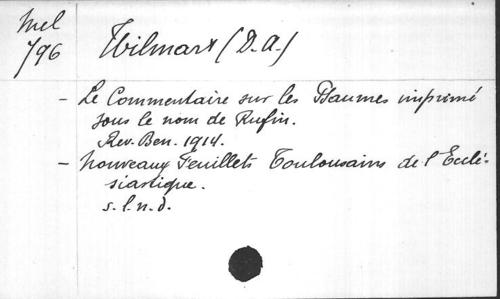 Mel
796
Wilmart (D.A.)
- Le Commentaire sur les Psaumes imprimé
sous le nom de Rufin.
Rev. Ben. 1914.
- Nouveaux Feuillets Toulousains de l'Ecclé-
siastique.
s.l.n.d.